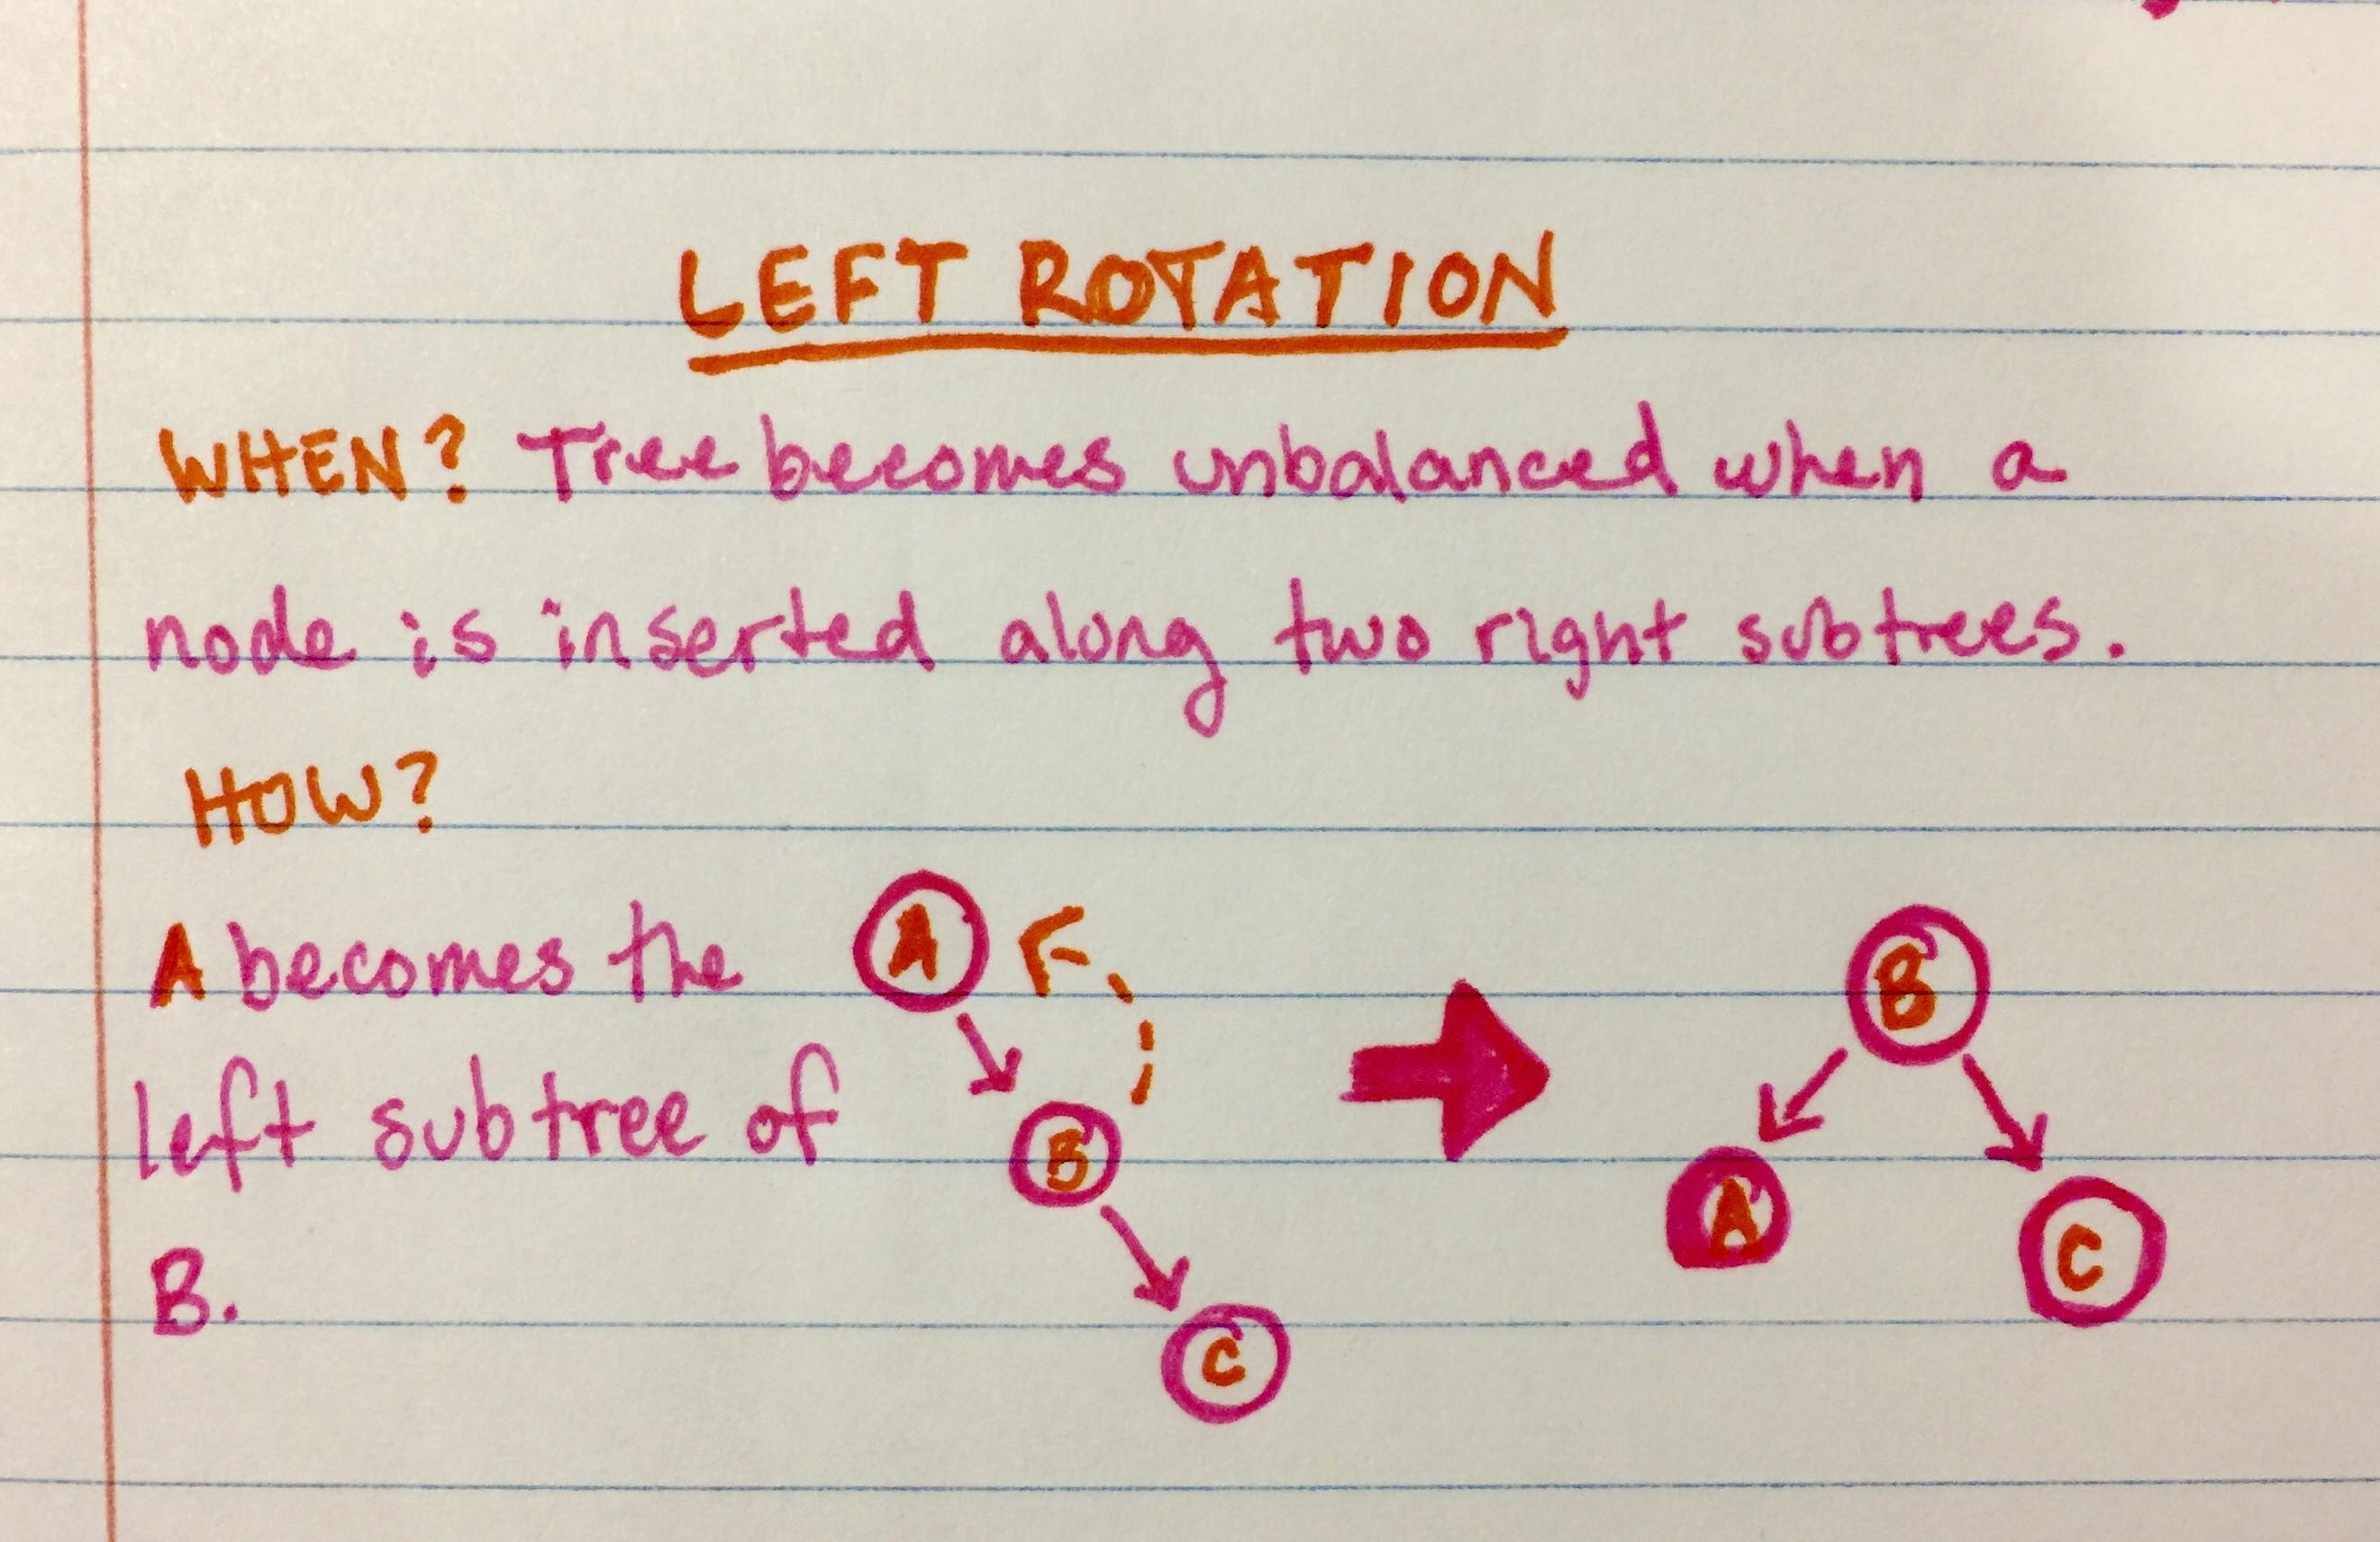 LEFT ROTATION
WHEN? Tree becomes unbalanced when a
node is inserted along two right subtrees.
HOW?
A becomes the
left subtree of
B.
A
B
C
B
A
C